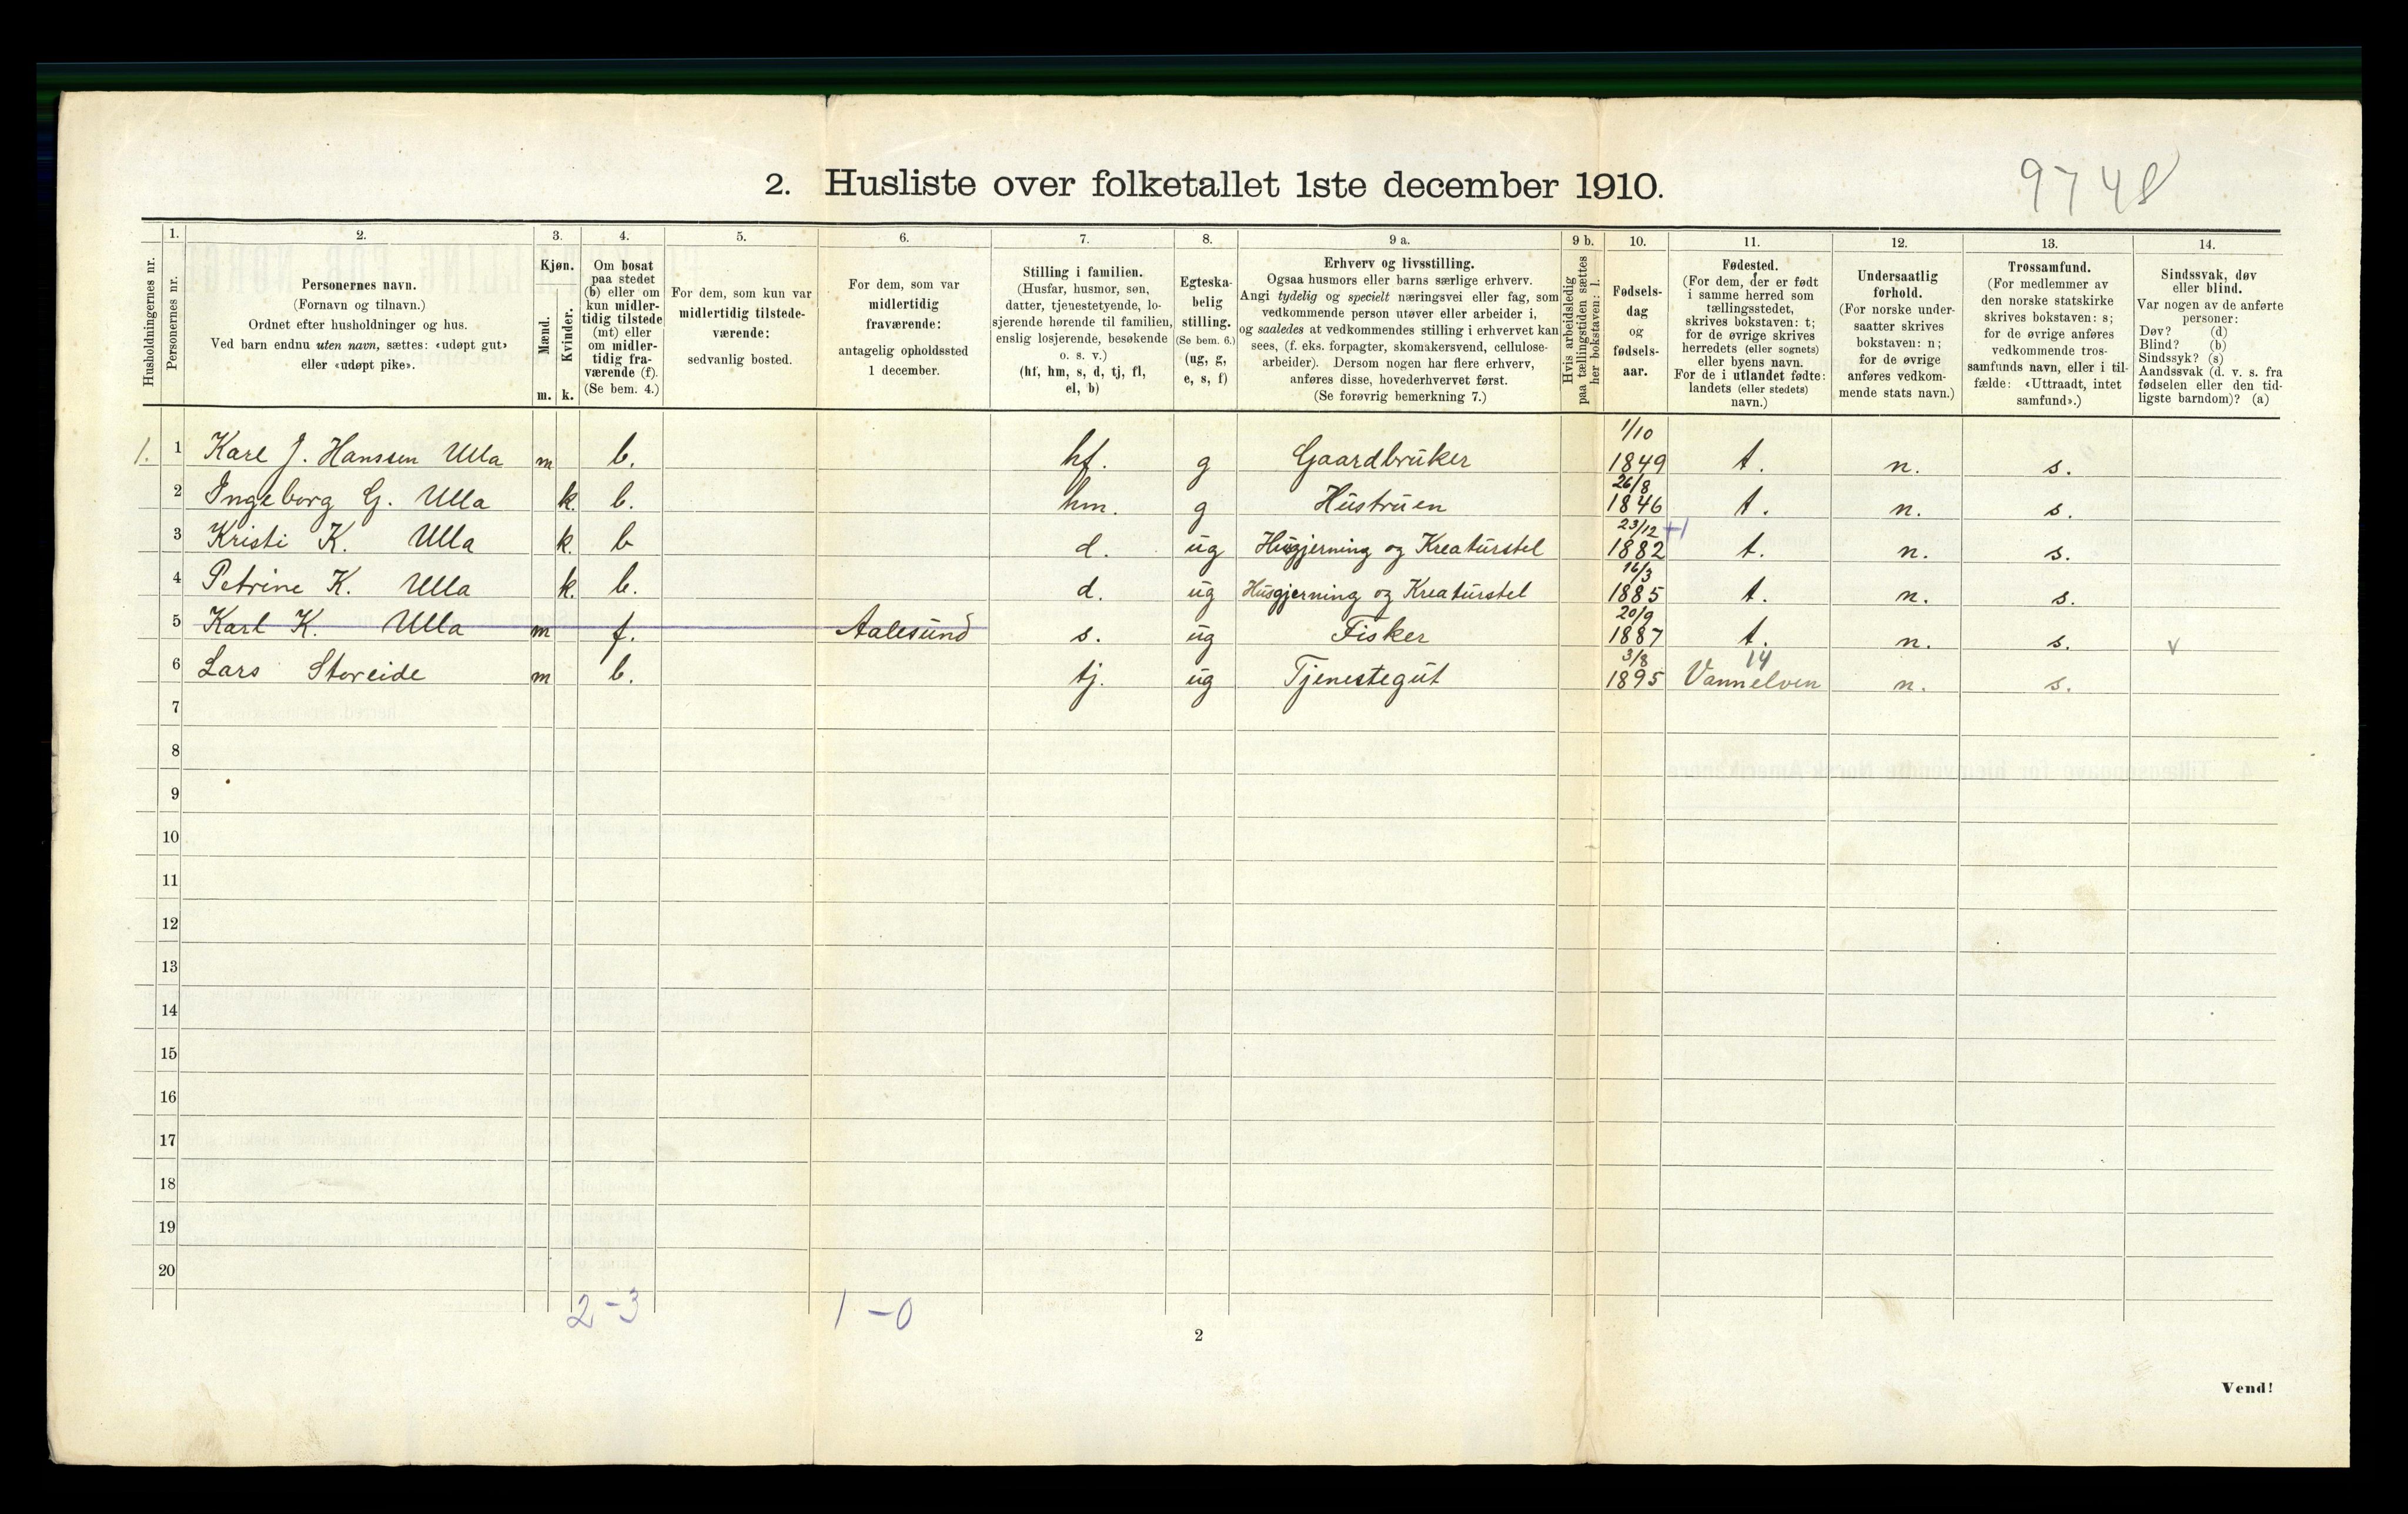 2. Husliste over folketallet 1ste december 1910.
9748
1. 2. 3. 4. 5. 6. 7. 8. 9 a. 9 b. 10. 11. 12. 13. 14.
Husholdningernes nr.
Personernes nr.
Personernes navn.
(Fornavn og tilnavn.)
Ordnet efter husholdninger og hus.
Ved barn endnu uten navn, sættes: «udøpt gut»
eller «udøpt pike».
Kjøn.
Mænd.
Kvinder.
m. k.
Om bosat
paa stedet
(b) eller om
kun midler-
tidig tilstede
(mt) eller
om midler-
tidig fra-
værende (f).
(Se bem. 4.)
For dem, som kun var
midlertidig tilstede-
værende:
sedvanlig bosted.
For dem, som var
midlertidig
fraværende:
antagelig opholdssted
1 december.
Stilling i familien.
(Husfar, husmor, søn,
datter, tjenestetyende, lo-
sjerende hørende til familien,
enslig losjerende, besøkende
o. s. v.)
(hf, hm, s, d, tj, fl,
el, b)
Egteska-
belig
stilling.
(Se bem. 6.)
(ug, g,
e, s, f)
Erhverv og livsstilling.
Ogsaa husmors eller barns særlige erhverv.
Angi tydelig og specielt næringsvei eller fag, som
vedkommende person utøver eller arbeider i,
og saaledes at vedkommendes stilling i erhvervet kan
sees, (f. eks. forpagter, skomakersvend, cellulose-
arbeider). Dersom nogen har flere erhverv,
anføres disse, hovederhvervet først.
(Se forøvrig bemerkning 7.)
Hvis arbeidsledig
paa tællingstiden sættes
her bokstaven: l.
Fødsels-
dag
og
fødsels-
aar.
Fødested.
(For dem, der er født
i samme herred som
tællingsstedet,
skrives bokstaven: t;
for de øvrige skrives
herredets (eller sognets)
eller byens navn.
For de i utlandet fødte:
landets (eller stedets)
navn.)
Undersaatlig
forhold.
(For norske under-
saatter skrives
bokstaven: n;
for de øvrige
anføres vedkom-
mende stats navn.)
Trossamfund.
(For medlemmer av
den norske statskirke
skrives bokstaven: s;
for de øvrige anføres
vedkommende tros-
samfunds navn, eller i til-
fælde: «Uttraadt, intet
samfund».)
Sindssvak, døv
eller blind.
Var nogen av de anførte
personer:
Døv? (d)
Blind? (b)
Sindssyk? (s)
Aandssvak (d. v. s. fra
fødselen eller den tid-
ligste barndom)? (a)
1. 1 Karl J. Hanssen Ulla m b. hf. g Gaardbruker 1/10 1849 t. n. s.
2 Ingeborg G. Ulla k. b. hm. g Hustruen 26/8 1846 t. n. s.
3 Kristi K. Ulla k. b d. ug Husgjerning og Kreaturstel 23/12 1882 +1 t. n. s.
4 Petrine K. Ulla k. b. d. ug Husgjerning og Kreaturstel 16/3 1885 t. n. s.
5 Karl K. Ulla m f. Aalesund s. ug Fisker 20/9 1887 t. n. s. v
6 Lars Storeide m b. tj. ug Tjenestegut 3/8 1895 14 Vannelven n. s.
7
8
9
10
11
12
13
14
15
16
17
18
19
20
2-3 1-0
2
Vend!